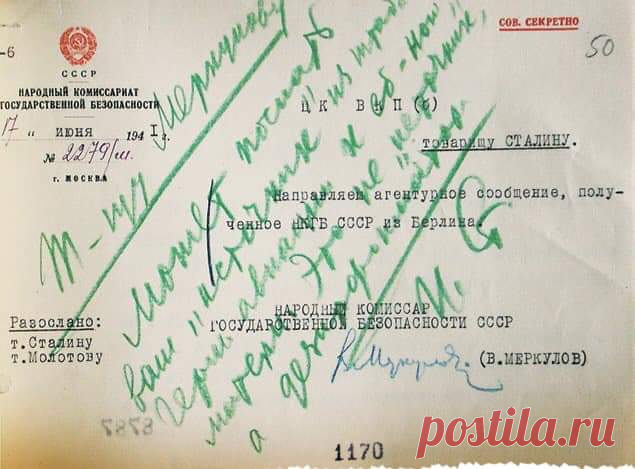 СОВ. СЕКРЕТНО
50
-6
СССР
НАРОДНЫЙ КОМИССАРИАТ
ГОСУДАРСТВЕННОЙ БЕЗОПАСНОСТИ
17 " июня 1941 г.
№ 2279/м.
г. МОСКВА
Ц К В К П (б)
товарищу СТАЛИНУ.
Направляем агентурное сообщение, полу-
ченное НКГБ СССР из Берлина.
НАРОДНЫЙ КОМИССАР
ГОСУДАРСТВЕННОЙ БЕЗОПАСНОСТИ СССР
(В.МЕРКУЛОВ)
Разослано:
т.Сталину
т.Молотову
Т-щу Меркулову
Может послать
ваш "источник" из штаба
герм. авиации к еб-ной
матери. Это не "источник",
а дезинформатор.
И. Ст.
1170
postila.ru